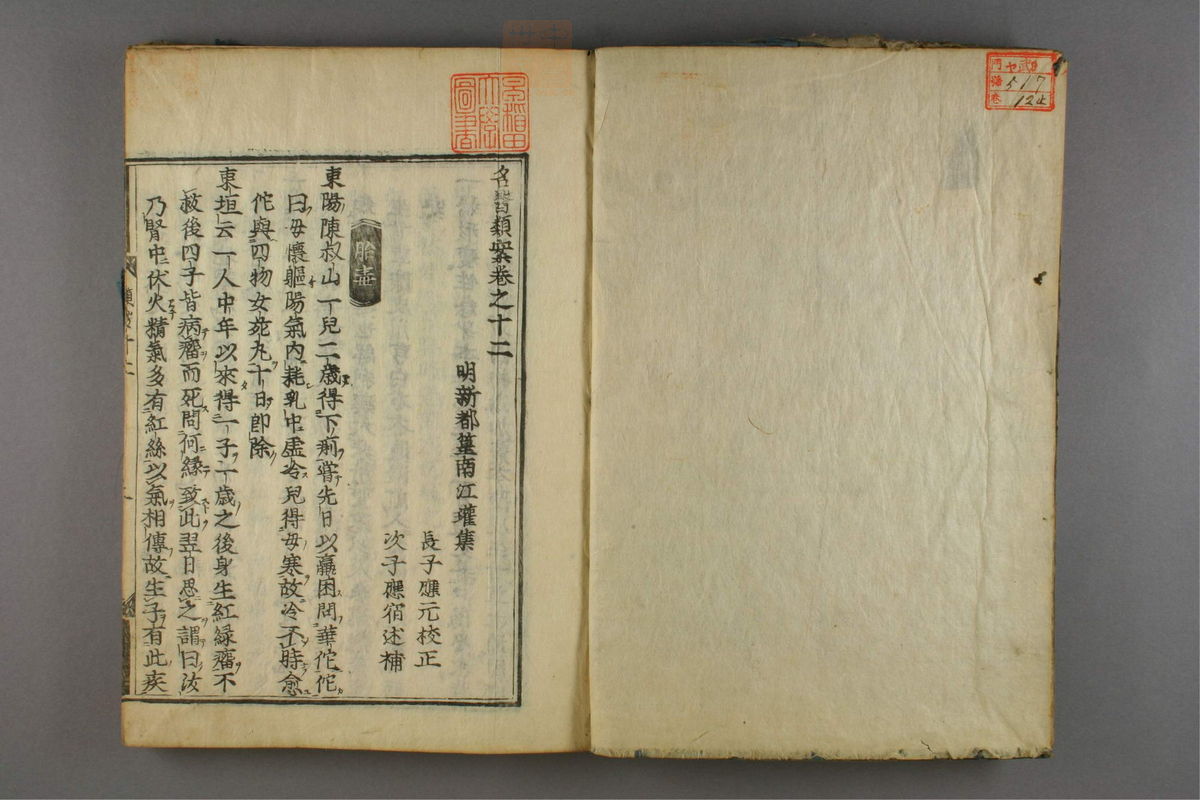 名醫類案卷之十二
明新都篁南江瓘集
長子應元校正
次子應宿述補
胎毒
東陽陳叔山一兒二歲得下痢嘗先日以羸困問華佗佗
曰母懷軀陽氣内耗乳中虛冷兒得母寒故冷不時愈
佗與四物女宛丸十日即除
東垣云一人中年以來得一子一歲之後身生紅緑瘤不
救後四子皆病瘤而死問何緣致此翌日思之謂曰汝
乃腎中伏火精氣多有紅絲以氣相傳故生子有此疾
類案十二
早稲田
大學
圖書
門 ヤ
號 517
卷 12止